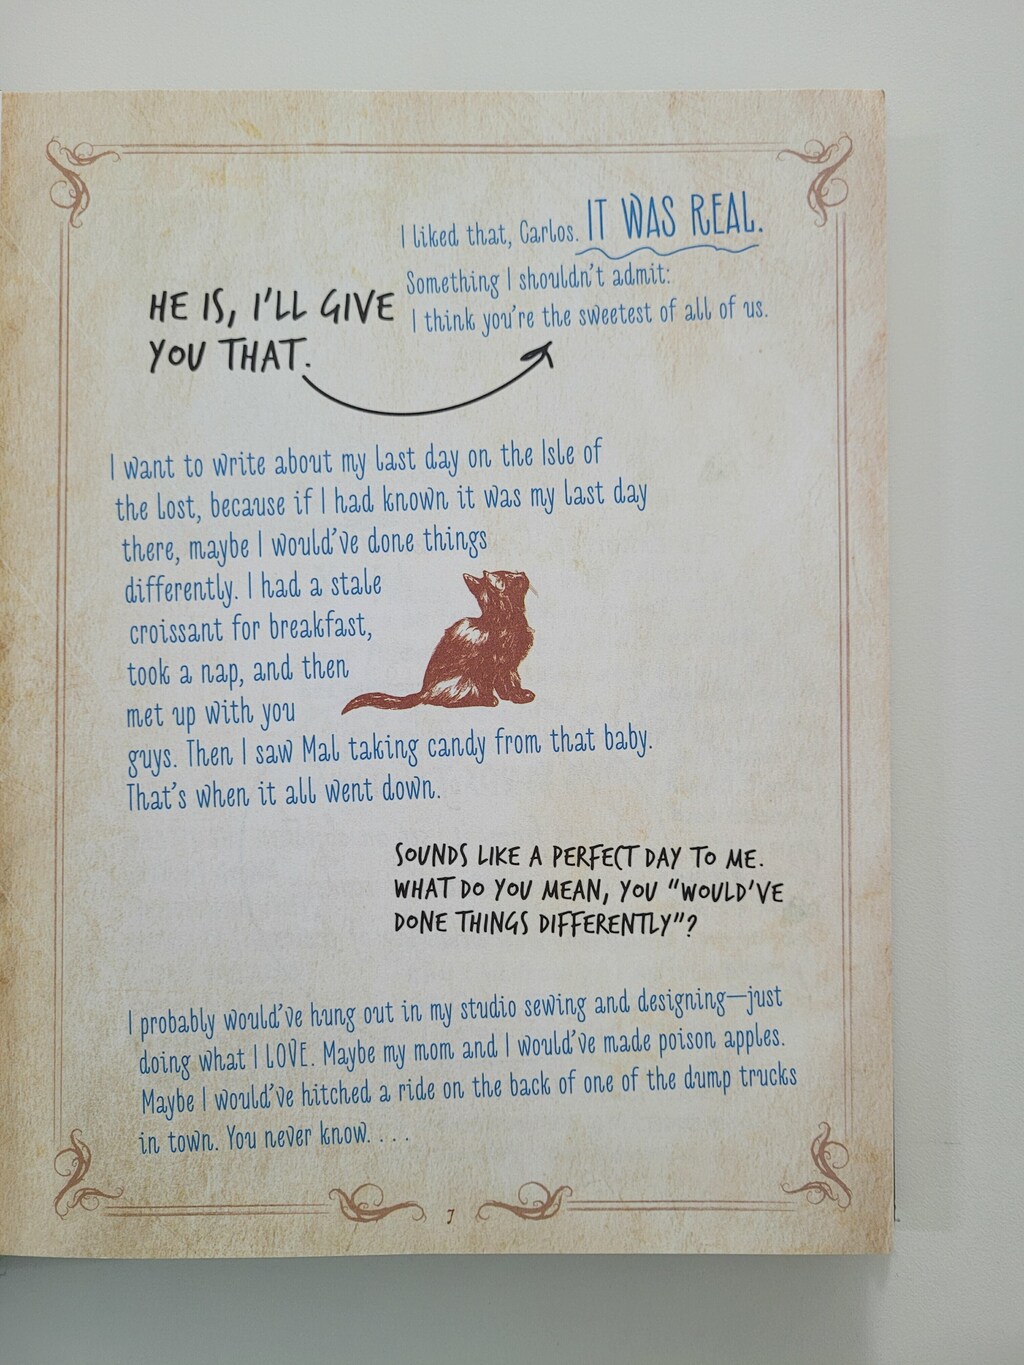 I liked that, Carlos. IT WAS REAL.
Something I shouldn't admit:
I think you're the sweetest of all of us.
HE IS, I'LL GIVE
YOU THAT.
I want to write about my last day on the Isle of
the Lost, because if I had known it was my last day
there, maybe I would've done things
differently. I had a stale
croissant for breakfast,
took a nap, and then
met up with you
guys. Then I saw Mal taking candy from that baby.
That's when it all went down.
SOUNDS LIKE A PERFECT DAY TO ME.
WHAT DO YOU MEAN, YOU "WOULD'VE
DONE THINGS DIFFERENTLY"?
I probably would've hung out in my studio sewing and designing—just
doing what I LOVE. Maybe my mom and I would've made poison apples.
Maybe I would've hitched a ride on the back of one of the dump trucks
in town. You never know. . . .
7